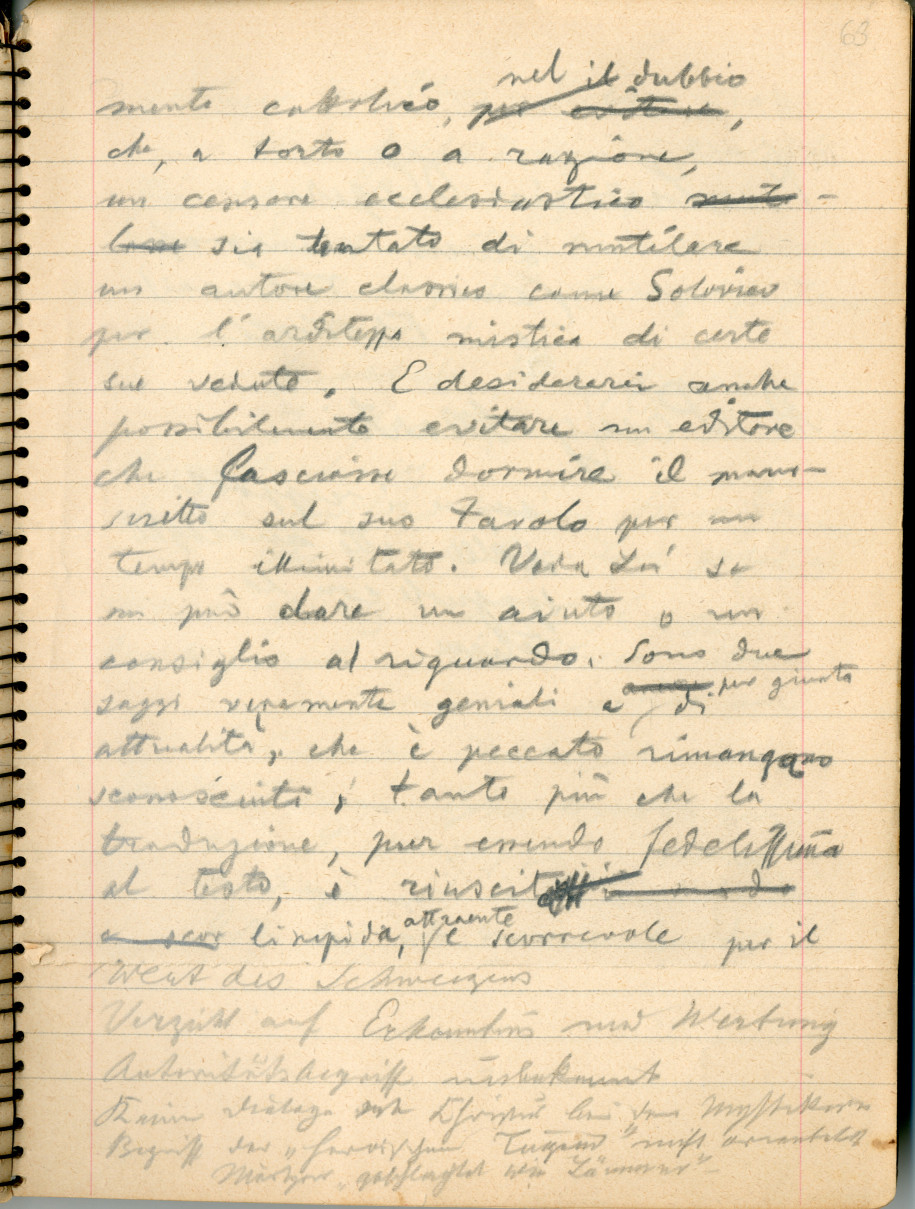 63
nel il dubbio
mente cattolico, per evitare,
che, a torto o a ragione,
un censore ecclesiastico
sia tentato di mutilare
un autore classico come Soloviev
per l'arditezza mistica di certe
sue vedute. E desidererei anche
possibilmente evitare un editore
che lasciasse dormire il mano-
scritto sul suo tavolo per un
tempo illimitato. Veda Lei se
mi può dare un aiuto o un
consiglio al riguardo. Sono due
saggi veramente geniali e per giunta di
attualità, che è peccato rimangano
sconosciuti, tanto più che la
traduzione, pur essendo fedelissima
al testo, è riuscita
limpida, attraente e scorrevole per il
Wert des Schweigens
Verzicht auf Erkenntnis und Wertung
Autoritätsbegriff unbekannt
Keine Dialoge mit Christus bei den Mystikern
Begriff der „heroischen Tugend" nicht
Märtyrer „geschlachtet wie Lämmer"